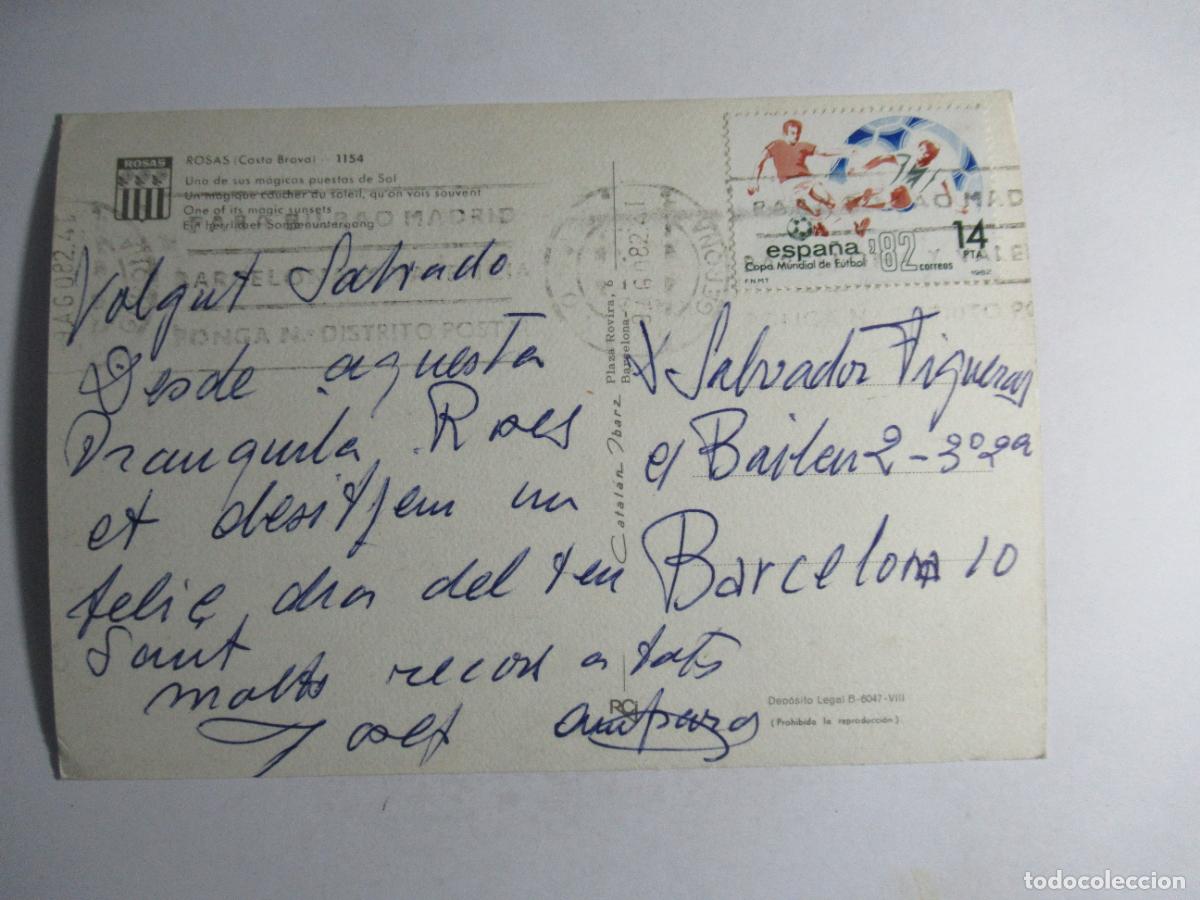 ROSAS
ROSAS (Costa Brava) - 1154
Una de sus mágicas puestas de Sol
Un magique coucher du soleil, qu'on vois souvent
One of its magic sunsets
Ein herrlicher Sonnenuntergang
PARA BILBAO MADRID
BARCELO
PONGA N.º DISTRITO POSTAL
AGO 82
GERONA
españa '82
14 PTA
Copa Mundial de Fútbol
correos
1982
F.N.M.T
Volgut Salvado
Desde aquesta
Tranquila Roses
et desitjem un
feliç dia del teu
Sant
molts record a tots
Josep Amparo
Catalán Ibarz
Plaza Rovira, 6
Barcelona-
D Salvador Figueras
c/ Bailen 2 - 3º 2ª
Barcelona 10
RCI
Depósito Legal B-6047-VIII
(Prohibida la reproducción)
todocoleccion